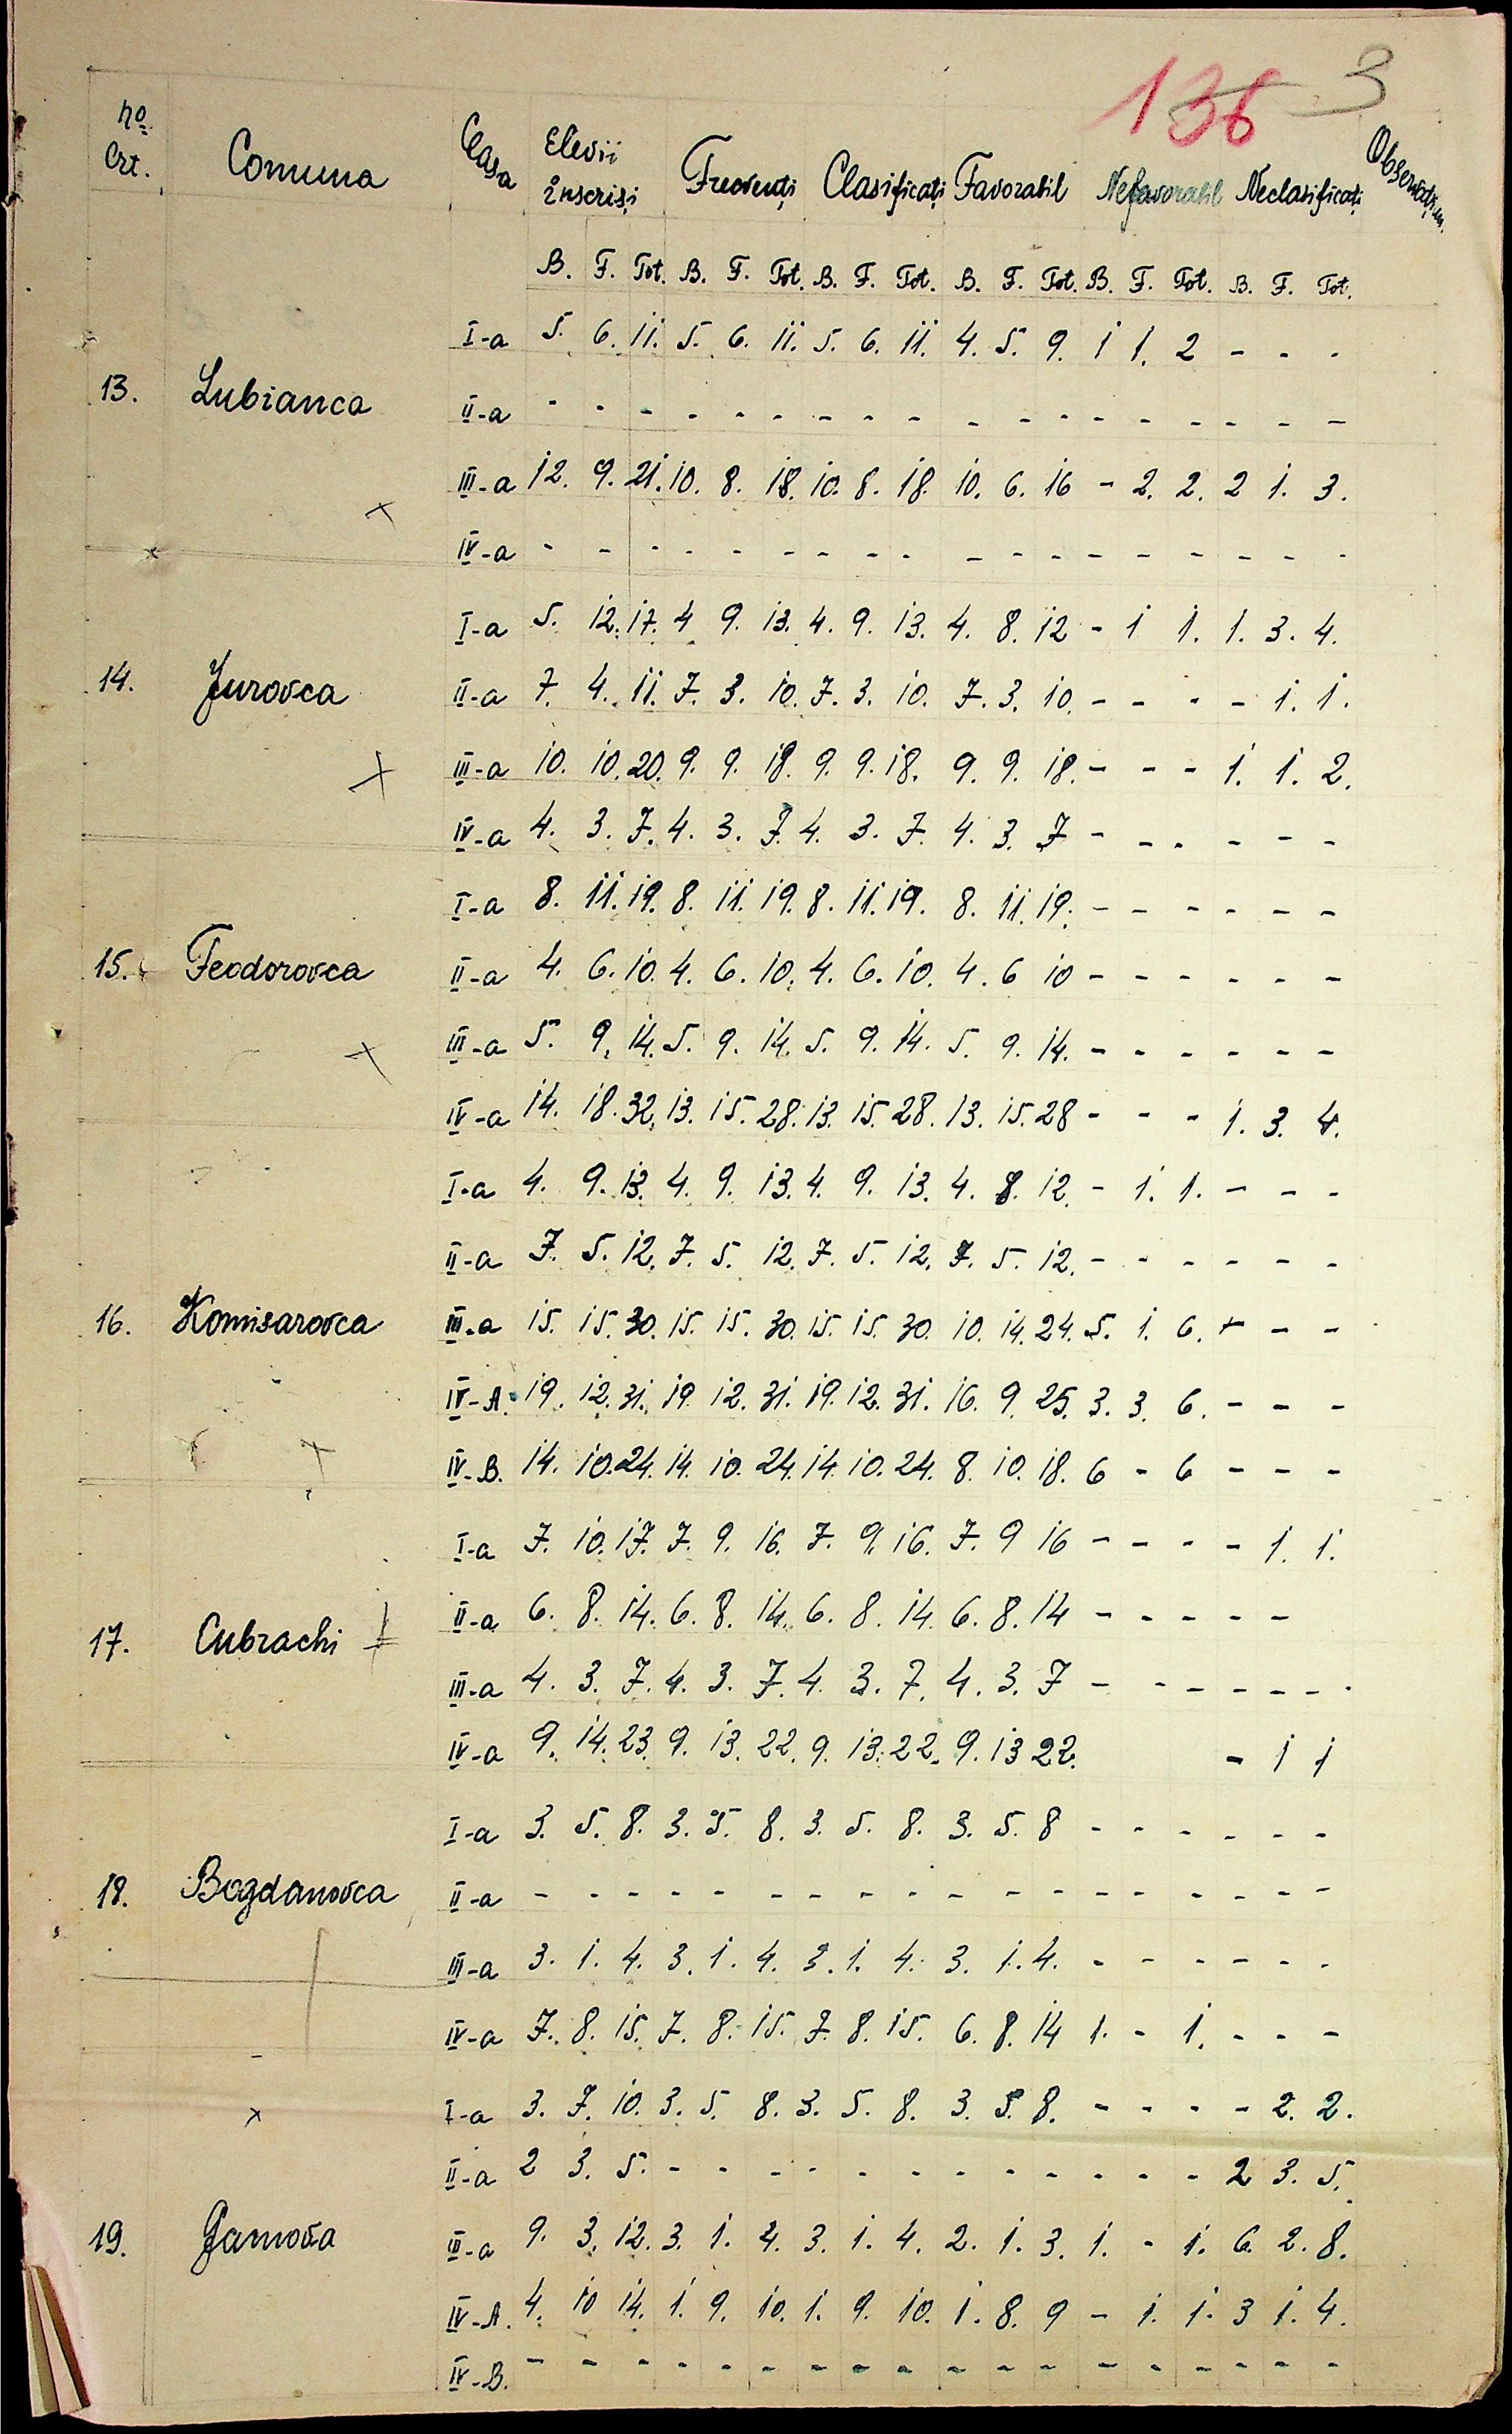 136 3
No Crt. Comuna Clasa Elevii înscriși Frecvenți Clasificați Favorabil Nefavorabil Neclasificați Observațiuni.
B. F. Tot. B. F. Tot. B. F. Tot. B. F. Tot. B. F. Tot. B. F. Tot.
I-a 5. 6. 11. 5. 6. 11. 5. 6. 11. 4. 5. 9. 1 1. 2 - - -
13. Lubianca
II-a - - - - - - - - - - - - - - - - - -
III-a 12. 9. 21. 10. 8. 18. 10. 8. 18. 10. 6. 16 - 2. 2. 2 1. 3.
IV-a - - - - - - - - - - - - - - - - - -
I-a 5. 12. 17. 4 9. 13. 4. 9. 13. 4. 8. 12 - 1 1. 1. 3. 4.
14. Jurovca
II-a 7. 4. 11. 7. 3. 10. 7. 3. 10. 7. 3. 10. - - - - 1. 1.
III-a 10. 10. 20. 9. 9. 18. 9. 9. 18. 9. 9. 18. - - - 1. 1. 2.
IV-a 4. 3. 7. 4. 3. 7. 4. 3. 7. 4. 3. 7 - - - - - -
I-a 8. 11. 19. 8. 11. 19. 8. 11. 19. 8. 11. 19. - - - - - -
15. Feodorovca
II-a 4. 6. 10. 4. 6. 10. 4. 6. 10. 4. 6 10 - - - - - -
III-a 5. 9. 14. 5. 9. 14. 5. 9. 14. 5. 9. 14. - - - - - -
IV-a 14. 18. 32. 13. 15. 28. 13. 15. 28. 13. 15. 28 - - - 1. 3. 4.
I-a 4. 9. 13. 4. 9. 13. 4. 9. 13. 4. 8. 12. - 1. 1. - - -
II-a 7. 5. 12. 7. 5. 12. 7. 5. 12. 7. 5. 12. - - - - - -
16. Komisarovca III-a 15. 15. 30. 15. 15. 30. 15. 15. 30. 10. 14. 24. 5. 1. 6. - - -
IV-A. 19. 12. 31. 19. 12. 31. 19. 12. 31. 16. 9. 25. 3. 3. 6. - - -
IV-B. 14. 10. 24. 14. 10. 24. 14. 10. 24. 8. 10. 18. 6 - 6 - - -
I-a 7. 10. 17. 7. 9. 16. 7. 9. 16. 7. 9 16 - - - - 1. 1.
II-a 6. 8. 14. 6. 8. 14. 6. 8. 14. 6. 8. 14 - - - - -
17. Cubrachi
III-a 4. 3. 7. 4. 3. 7. 4. 3. 7. 4. 3. 7 - - - - - -
IV-a 9. 14. 23. 9. 13. 22. 9. 13. 22. 9. 13 22. - 1 1
I-a 3. 5. 8. 3. 5. 8. 3. 5. 8. 3. 5. 8 - - - - - -
18. Bogdanovca II-a - - - - - - - - - - - - - - - - - -
III-a 3. 1. 4. 3. 1. 4. 3. 1. 4. 3. 1. 4. - - - - - -
IV-a 7. 8. 15. 7. 8. 15. 7. 8. 15. 6. 8. 14 1. - 1. - - -
I-a 3. 7. 10. 3. 5. 8. 3. 5. 8. 3. 5. 8. - - - - 2. 2.
II-a 2 3. 5. - - - - - - - - - - - - 2 3. 5.
19. III-a 9. 3. 12. 3. 1. 4. 3. 1. 4. 2. 1. 3. 1. - 1. 6. 2. 8.
IV-A. 4. 10 14. 1. 9. 10. 1. 9. 10. 1. 8. 9 - 1. 1. 3 1. 4.
IV-B. - - - - - - - - - - - - - - - - - -